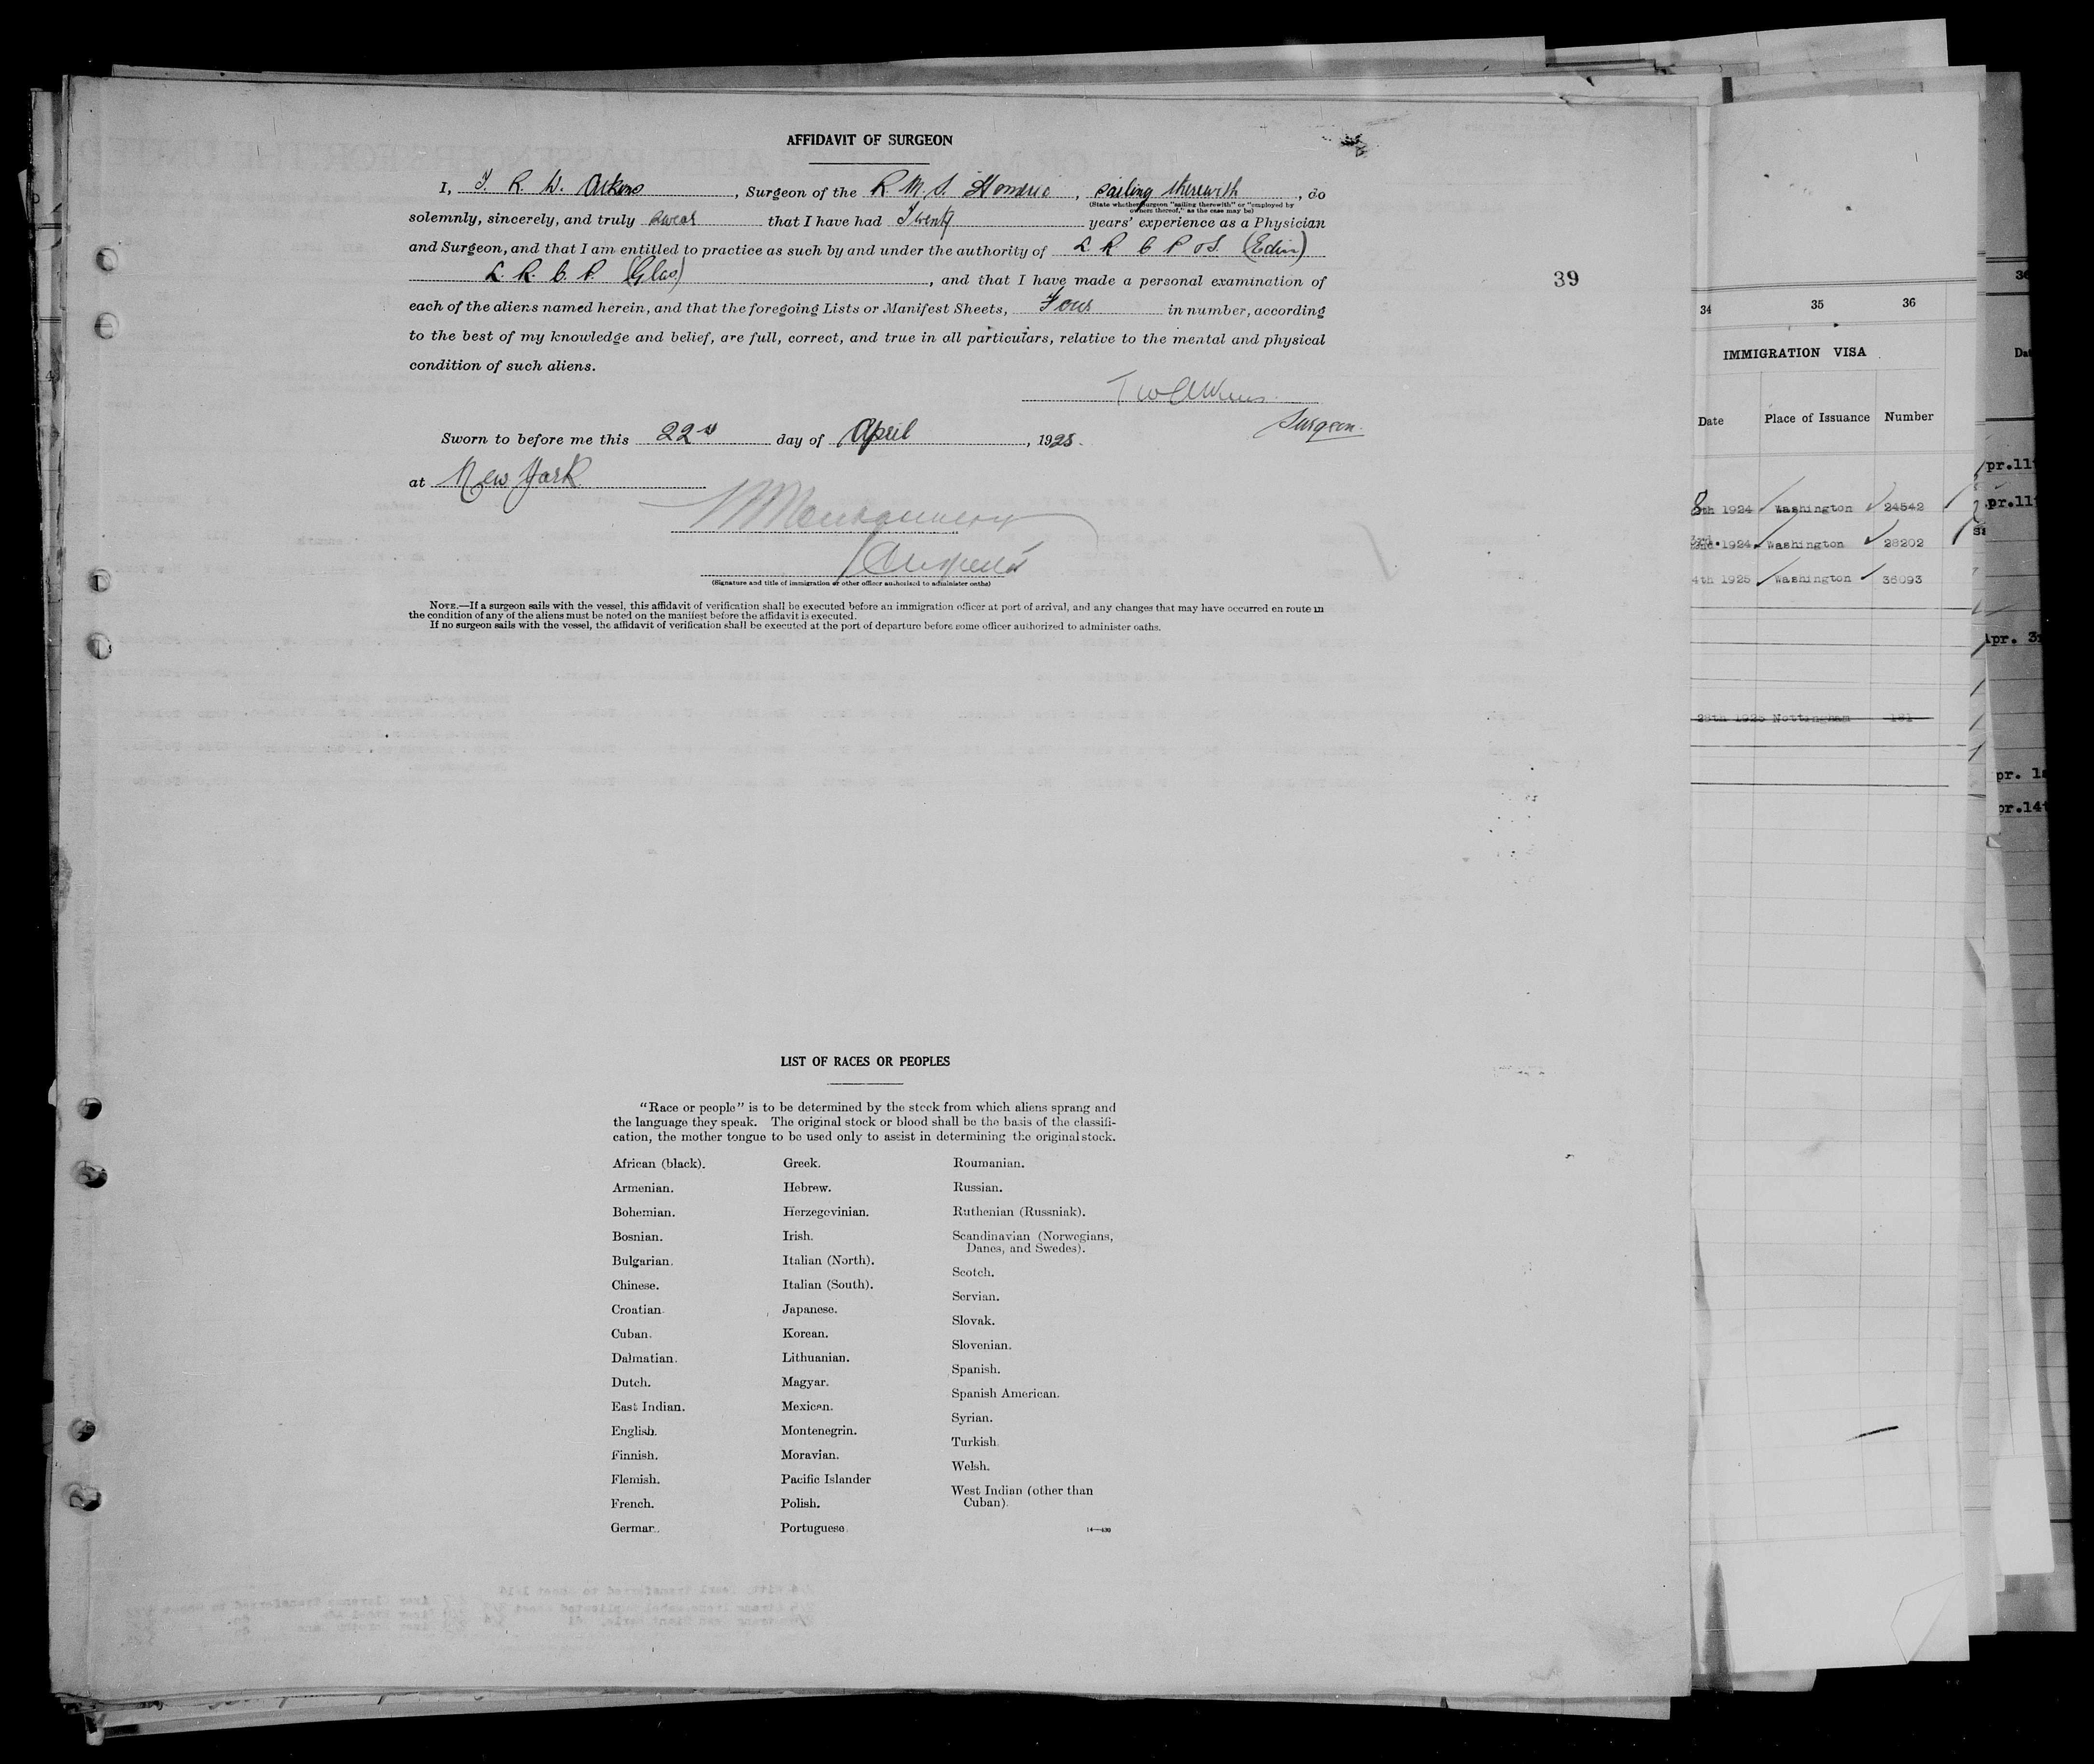 AFFIDAVIT OF SURGEON
I, T. R. W. Atkins, Surgeon of the R. M. S. Homeric, sailing therewith, do
(State whether surgeon "sailing therewith" or "employed by
owners thereof," as the case may be)
solemnly, sincerely, and truly swear that I have had Twenty years' experience as a Physician
and Surgeon, and that I am entitled to practice as such by and under the authority of L. R. C. P. & S. (Edin)
L. R. C. P. (Glas), and that I have made a personal examination of
39
each of the aliens named herein, and that the foregoing Lists or Manifest Sheets, Four in number, according
to the best of my knowledge and belief, are full, correct, and true in all particulars, relative to the mental and physical
condition of such aliens.
Surgeon.
Sworn to before me this 22nd day of April, 1925.
at New York
(Signature and title of immigration or other officer authorized to administer oaths)
NOTE.—If a surgeon sails with the vessel, this affidavit of verification shall be executed before an immigration officer at port of arrival, and any changes that may have occurred en route in
the condition of any of the aliens must be noted on the manifest before the affidavit is executed.
If no surgeon sails with the vessel, the affidavit of verification shall be executed at the port of departure before some officer authorized to administer oaths.
LIST OF RACES OR PEOPLES
"Race or people" is to be determined by the stock from which aliens sprang and
the language they speak. The original stock or blood shall be the basis of the classifi-
cation, the mother tongue to be used only to assist in determining the original stock.
African (black).
Armenian.
Bohemian.
Bosnian.
Bulgarian.
Chinese.
Croatian.
Cuban.
Dalmatian.
Dutch.
East Indian.
English.
Finnish.
Flemish.
French.
German.
Greek.
Hebrew.
Herzegovinian.
Irish.
Italian (North).
Italian (South).
Japanese.
Korean.
Lithuanian.
Magyar.
Mexican.
Montenegrin.
Moravian.
Pacific Islander
Polish.
Portuguese.
Roumanian.
Russian.
Ruthenian (Russniak).
Scandinavian (Norwegians,
Danes, and Swedes).
Scotch.
Servian.
Slovak.
Slovenian.
Spanish.
Spanish American.
Syrian.
Turkish.
Welsh.
West Indian (other than
Cuban).
34 35 36
IMMIGRATION VISA
Date Place of Issuance Number
8th 1924 Washington 24542
1924 Washington 28202
4th 1925 Washington 36093
28th 1925 Nottingham 181
36
pr.11
pr.11
Apr. 3
pr. 1
pr.14